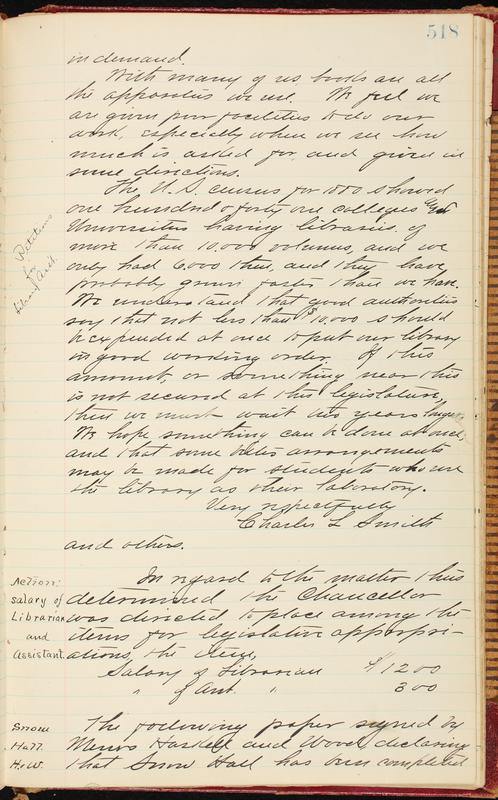 518
in demand.
With many of us books are all
the apparatus we use. We feel we
are given poor facilities to do our
work, especially when we see how
much is asked for, and given in
some directions.
The U.S. census for 1880 showed
one hundred & forty one colleges and
Universities having libraries of
more than 10.000 volumes, and we
only had 6.000 then, and they have
probably grown faster than we have.
We understand that good authorities
say that not less than $10,000 should
be expended at once to put our library
in good working order. If this
amount, or something near this
is not secured at this legislature,
then we must wait two years longer.
We hope something can be done at once,
and that some better arrangements
may be made for students who use
the library as their laboratory.
Very respectfully
Charles L Smith
and others.
Petitions
for
Library
Action:
salary of
Librarian
and
Assistant.
In regard to the matter thus
determined the Chancellor
was directed to place among the
items for legislative appropri-
ations the item,
Salary of Librarian $1200
" of Asst. " 300
Snow
Hall.
H.W.
The following paper signed by
Messrs Haskell and Wood, declaring
that Snow Hall has been completed